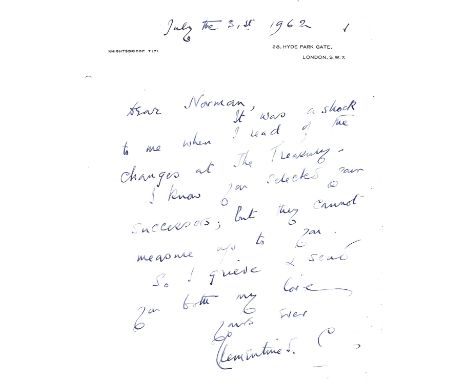 July the 31st 1962
KNIGHTSBRIDGE 7171
28, HYDE PARK GATE,
LONDON, S.W.7.
Dear Norman,
It was a shock
to me when I read of the
changes at the Treasury.
I know you selected your
successors; but they cannot
measure up to you.
So I grieve & send
you both my love
Yours ever
Clementine S. C